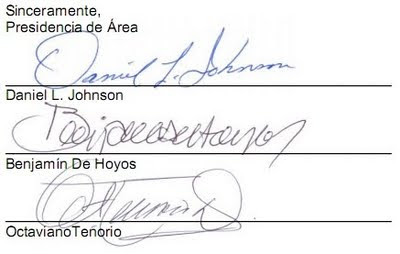 Sinceramente,
Presidencia de Área
Daniel L. Johnson
Daniel L. Johnson
Benjamín De Hoyos
OctavianoTenorio